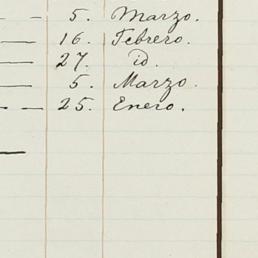 — 5. Marzo.
— 16. Febrero.
— 27. id.
— 5. Marzo.
- - 25. Enero.